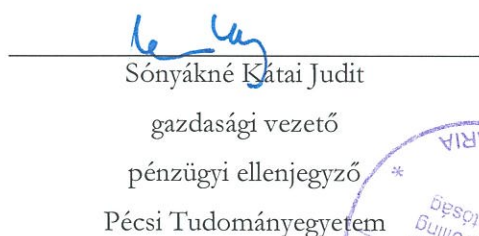 Sónyákné Kátai Judit
gazdasági vezető
pénzügyi ellenjegyző
Pécsi Tudományegyetem